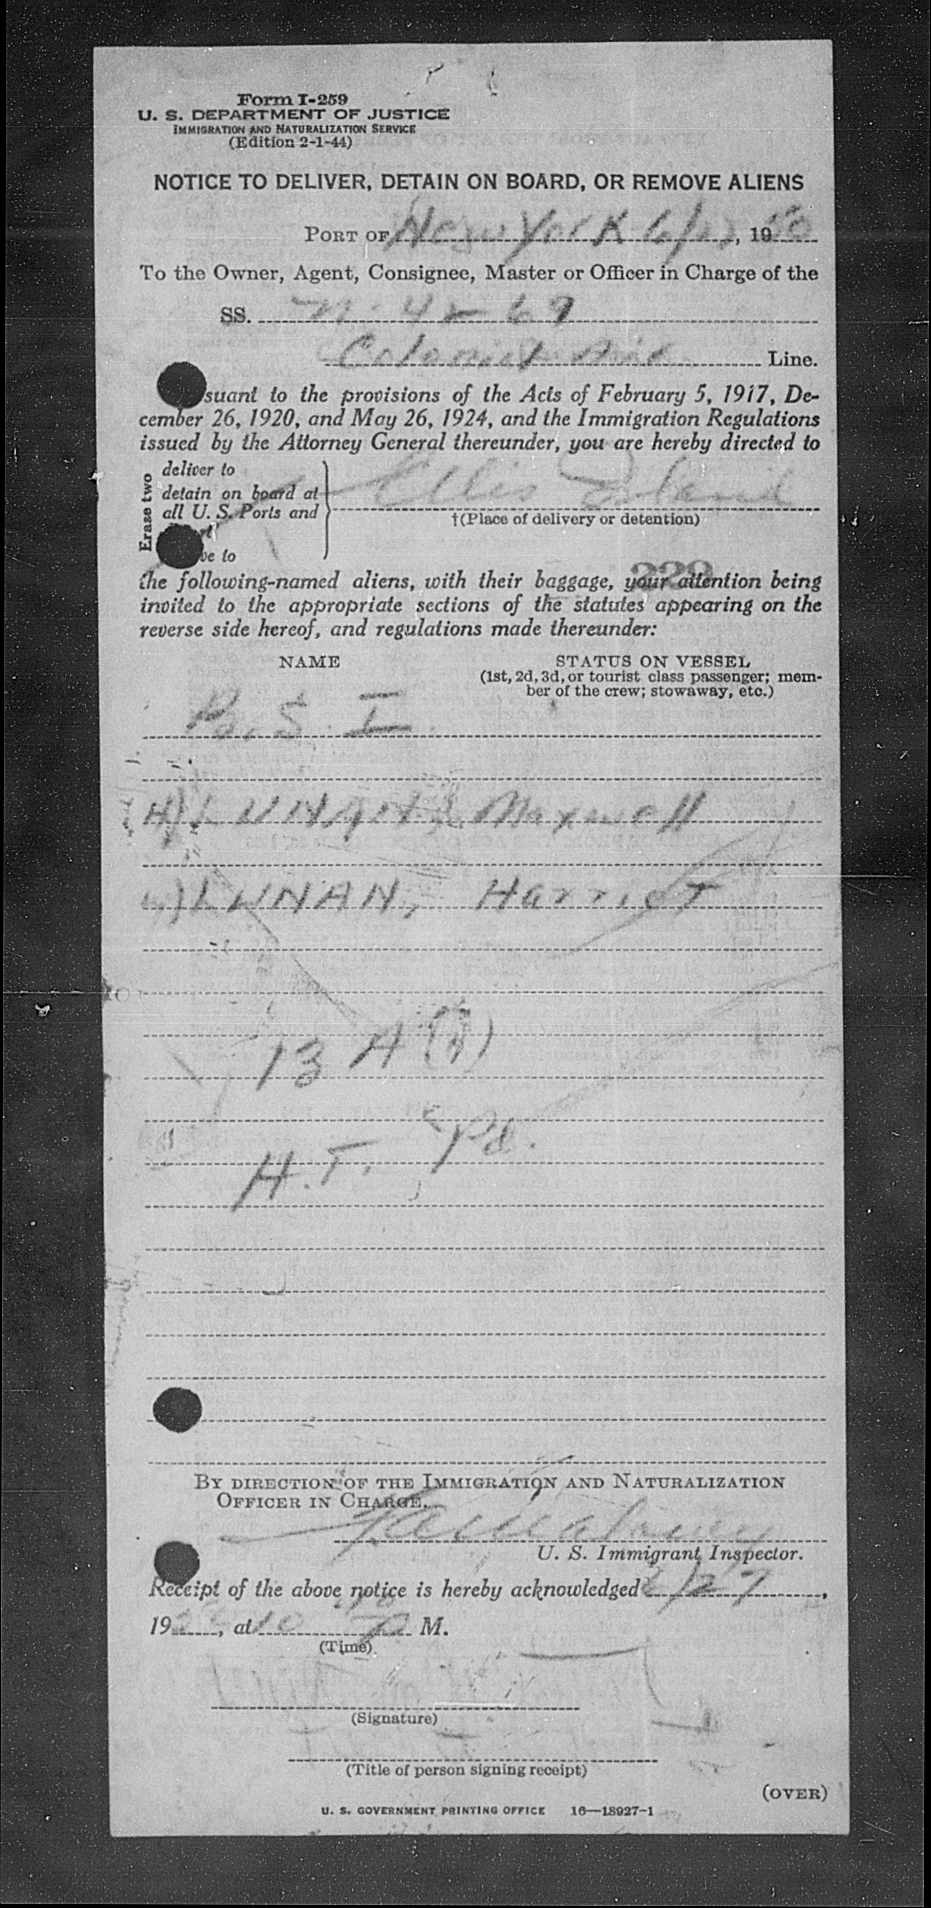 Form I-259
U. S. DEPARTMENT OF JUSTICE
IMMIGRATION AND NATURALIZATION SERVICE
(Edition 2-1-44)
NOTICE TO DELIVER, DETAIN ON BOARD, OR REMOVE ALIENS
PORT OF New York 6/27, 1950
To the Owner, Agent, Consignee, Master or Officer in Charge of the
SS. N-4
Colonial Line.
suant to the provisions of the Acts of February 5, 1917, De-
cember 26, 1920, and May 26, 1924, and the Immigration Regulations
issued by the Attorney General thereunder, you are hereby directed to
Erase two
deliver to
detain on board at
all U. S. Ports and
ve to
Ellis Island
†(Place of delivery or detention)
229
the following-named aliens, with their baggage, your attention being
invited to the appropriate sections of the statutes appearing on the
reverse side hereof, and regulations made thereunder:
NAME STATUS ON VESSEL
(1st, 2d, 3d, or tourist class passenger; mem-
ber of the crew; stowaway, etc.)
B. S. I.
H) LUNAN, Maxwell
LUNAN, Harriet
13 A
H. T. Pd.
BY DIRECTION OF THE IMMIGRATION AND NATURALIZATION
OFFICER IN CHARGE.
U. S. Immigrant Inspector.
Receipt of the above notice is hereby acknowledged 6/27,
19, at 10 P M.
(Time)
(Signature)
(Title of person signing receipt)
(OVER)
U. S. GOVERNMENT PRINTING OFFICE 16—18927-1